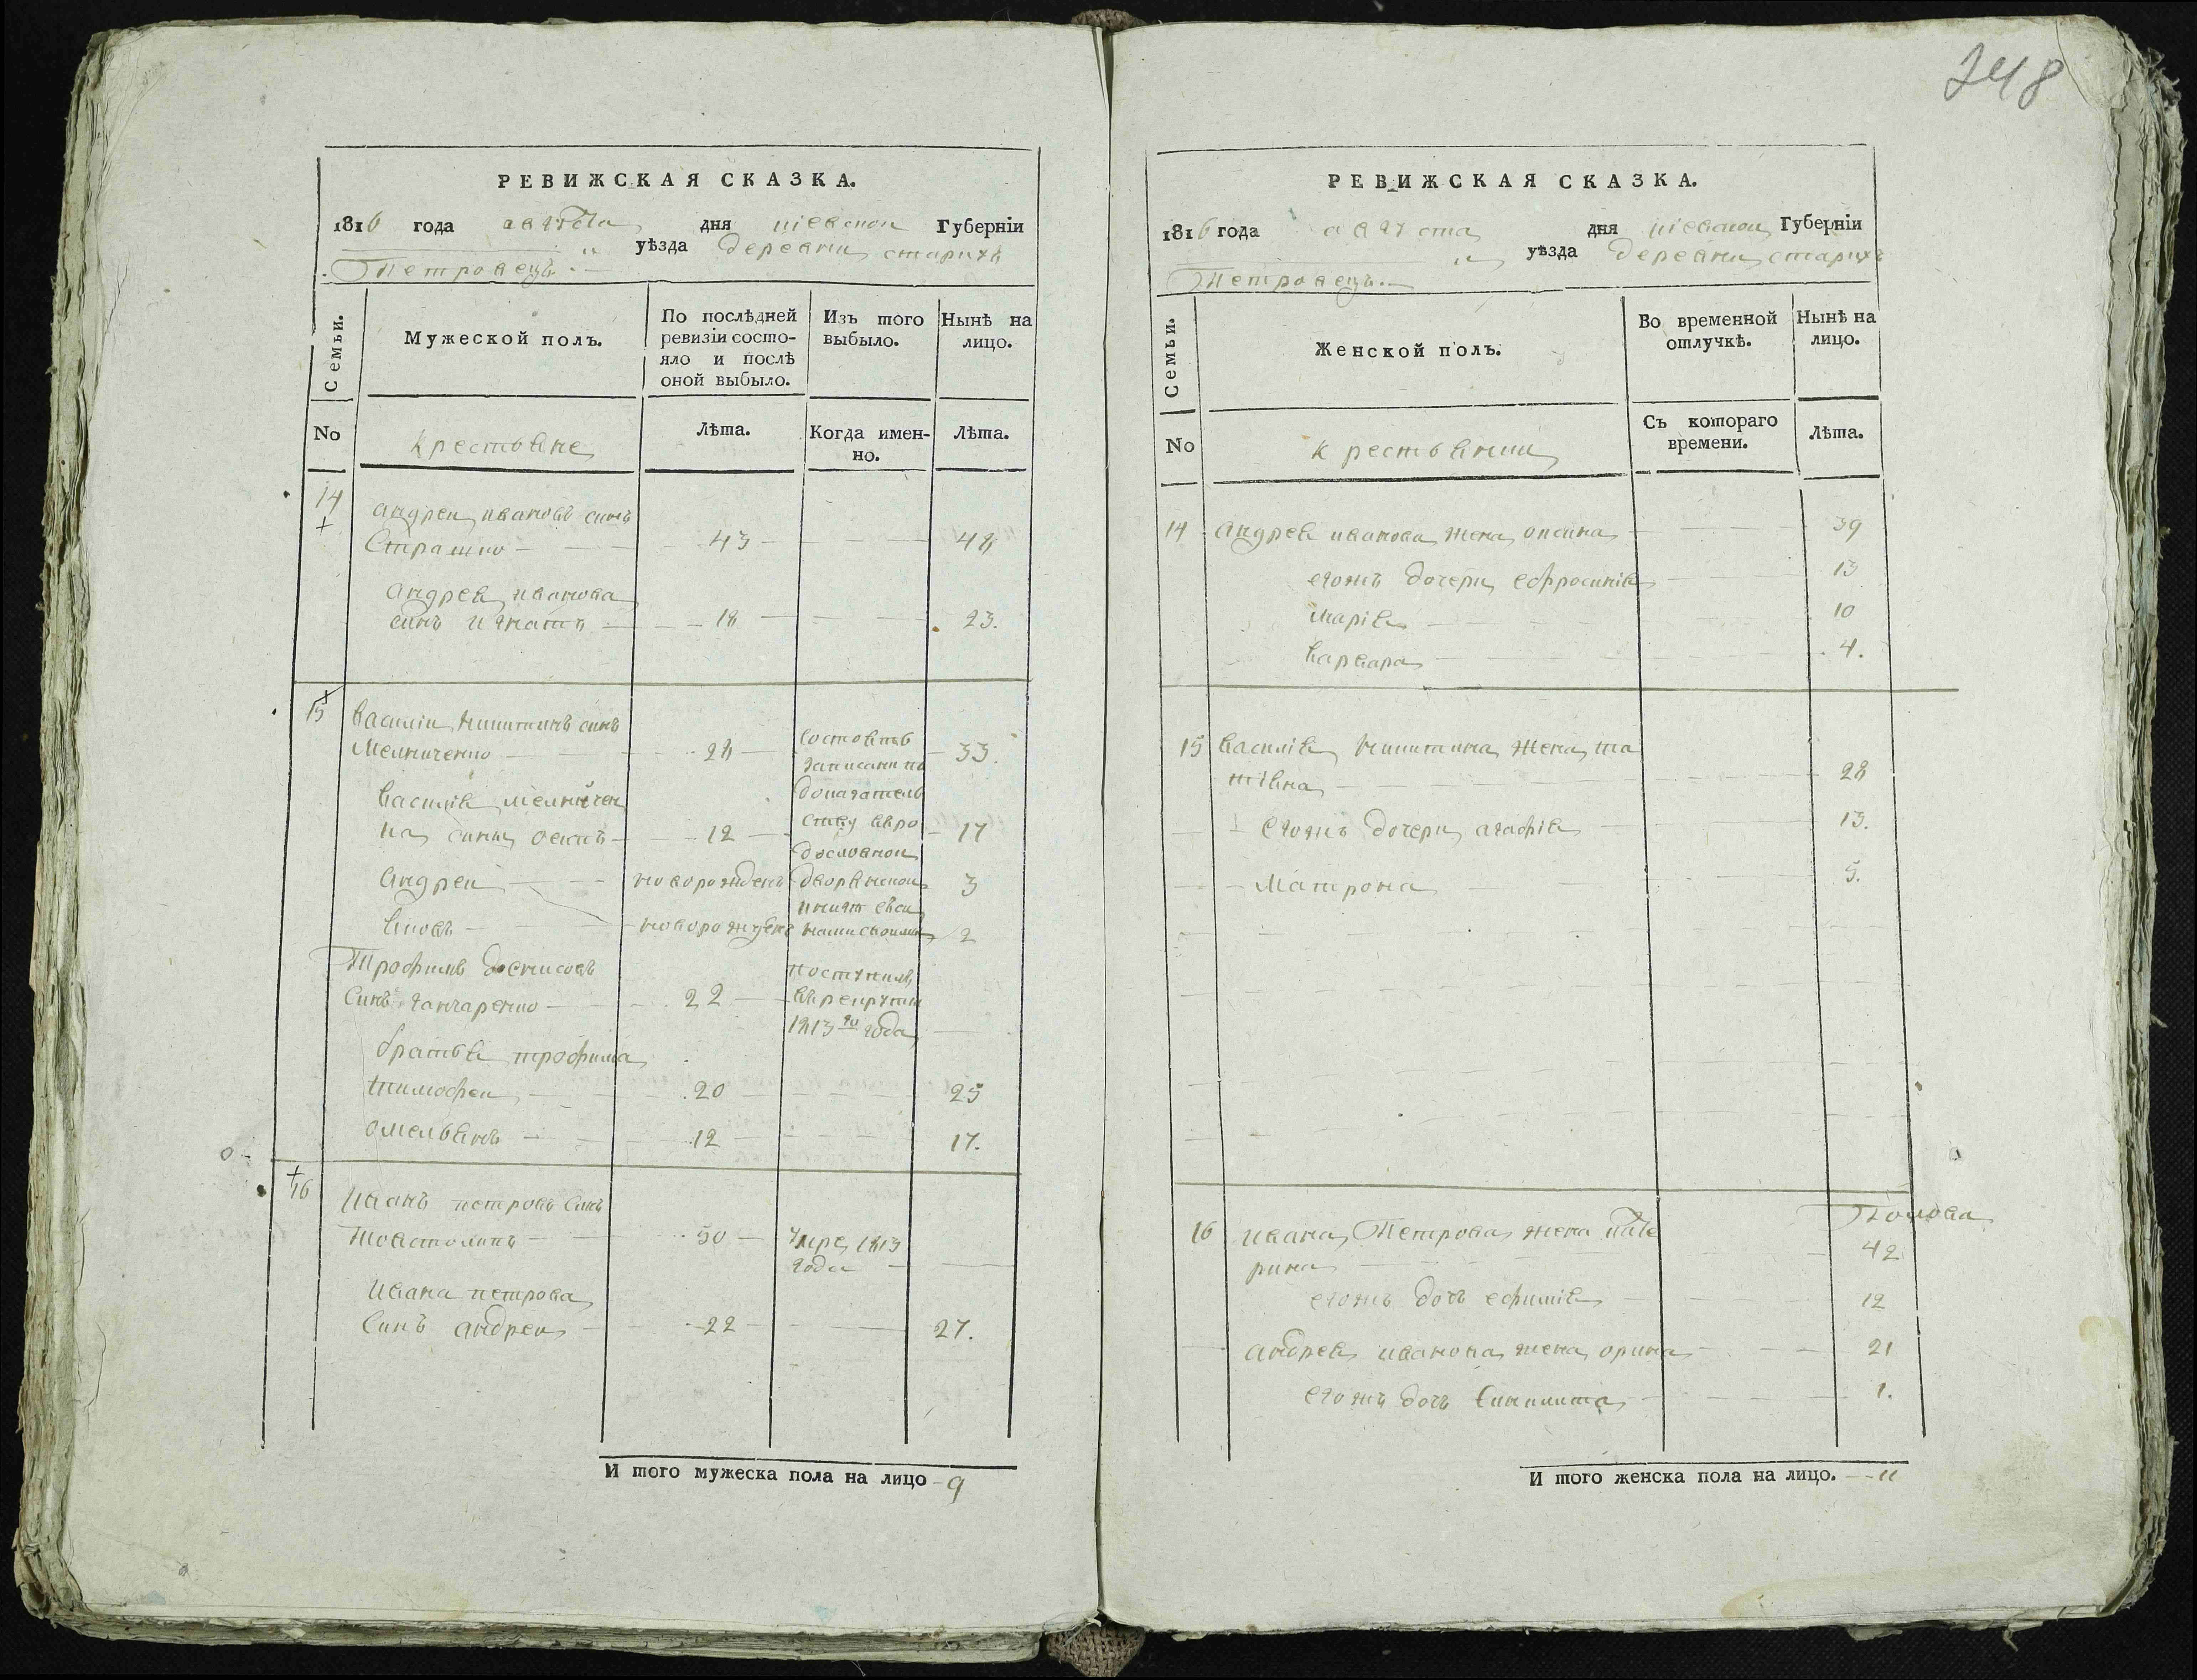 248
РЕВИЖСКАЯ СКАЗКА.
1816 года августа дня киевской Губерніи
уѣзда деревни старихъ
Петровецъ.
Семьи.
Мужеской полъ.
По послѣдней ревизіи состояло и послѣ оной выбыло.
Изъ того выбыло.
Нынѣ на лицо.
No
крестьяне
Лѣта.
Когда именно.
Лѣта.
14
андрей ивановъ синъ
Страшко 43 48
андрея иванова
синъ игнатъ 18 23.
15
василій никитинъ синъ
Мелниченко 28 33.
состоятъ
записани по
доказатель
ству
дворянской
василія мелничен
ка сини 12 17
андрей новорожденъ 3
яковъ новорожденъ 2
Трофимъ денисовъ
синъ ганчаренко 22
поступилъ
в рекруты
1813го года
братья трофима
тимофей 20 25
омельянъ 12 17.
16
иванъ петровъ синъ
50 умре 1813
года
ивана петрова
синъ андрей 22 27.
И того мужеска пола на лицо 9
РЕВИЖСКАЯ СКАЗКА.
1816 года августа дня киевской Губерніи
уѣзда деревни старихъ
Петровецъ.
Семьи.
Женской полъ.
Во временной отлучкѣ.
Нынѣ на лицо.
No
крестьянки
Съ котораго времени.
Лѣта.
14 андрея иванова жена оксина 39
егожъ дочери ефросинія 13
марія 10
варвара 4.
15 василія никитина жена та
тіяна 28
егожъ дочери агафія 13.
Матрона 5.
16 ивана Петрова жена кате
рина 42
егожъ дочъ ефимія 12
андрея иванова жена орина 21
егожъ дочъ 1.
И того женска пола на лицо. 11